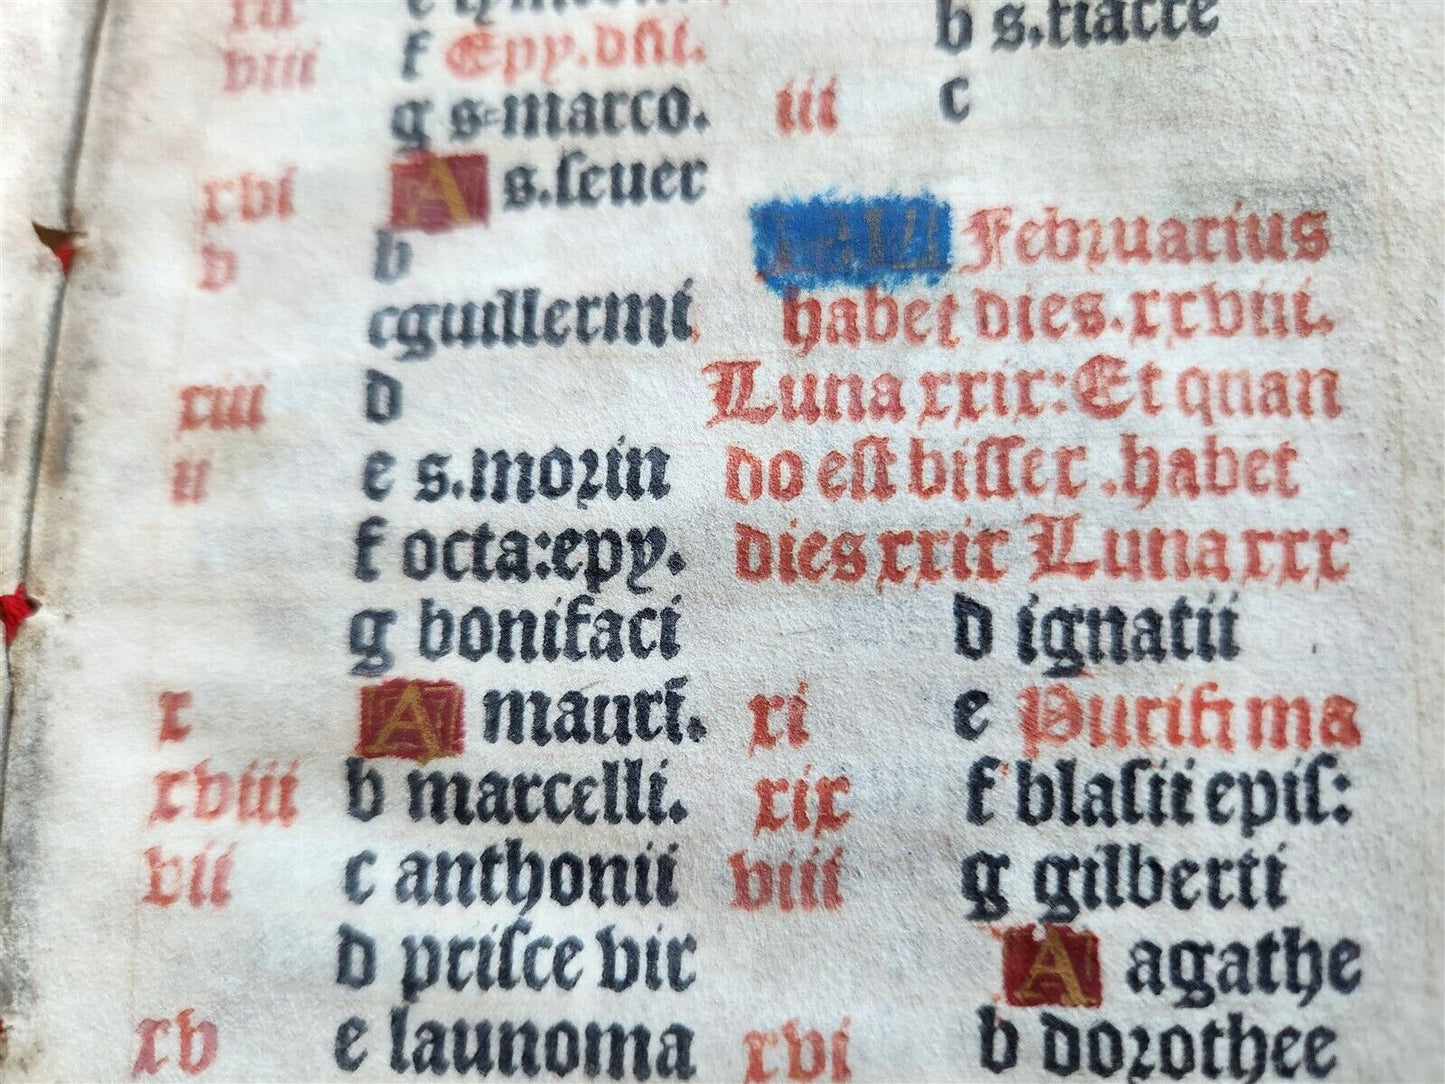 f Epy.dñi.
viii
g s=marco.
xvi A s.seuer
v b
cguillermi
xiii d
ii e s.morin
f octa:epy.
g bonifaci
x A mauri.
xviii b marcelli.
vii c anthonii
d prisce vir
xv e launoma
b s.fiacre
iii c
Februarius
habet dies.xxviii.
Luna xxix: Et quan
do est bissex .habet
dies xxix Luna xxx
d ignatii
xi e Purifi ma
xix f blasii epis:
viii g gilberti
A agathe
xvi b dorothee